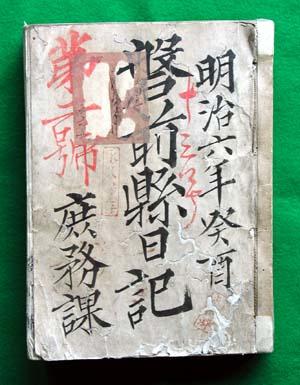 明治六年癸酉
十三号
磐前縣日記
第號
庶務課